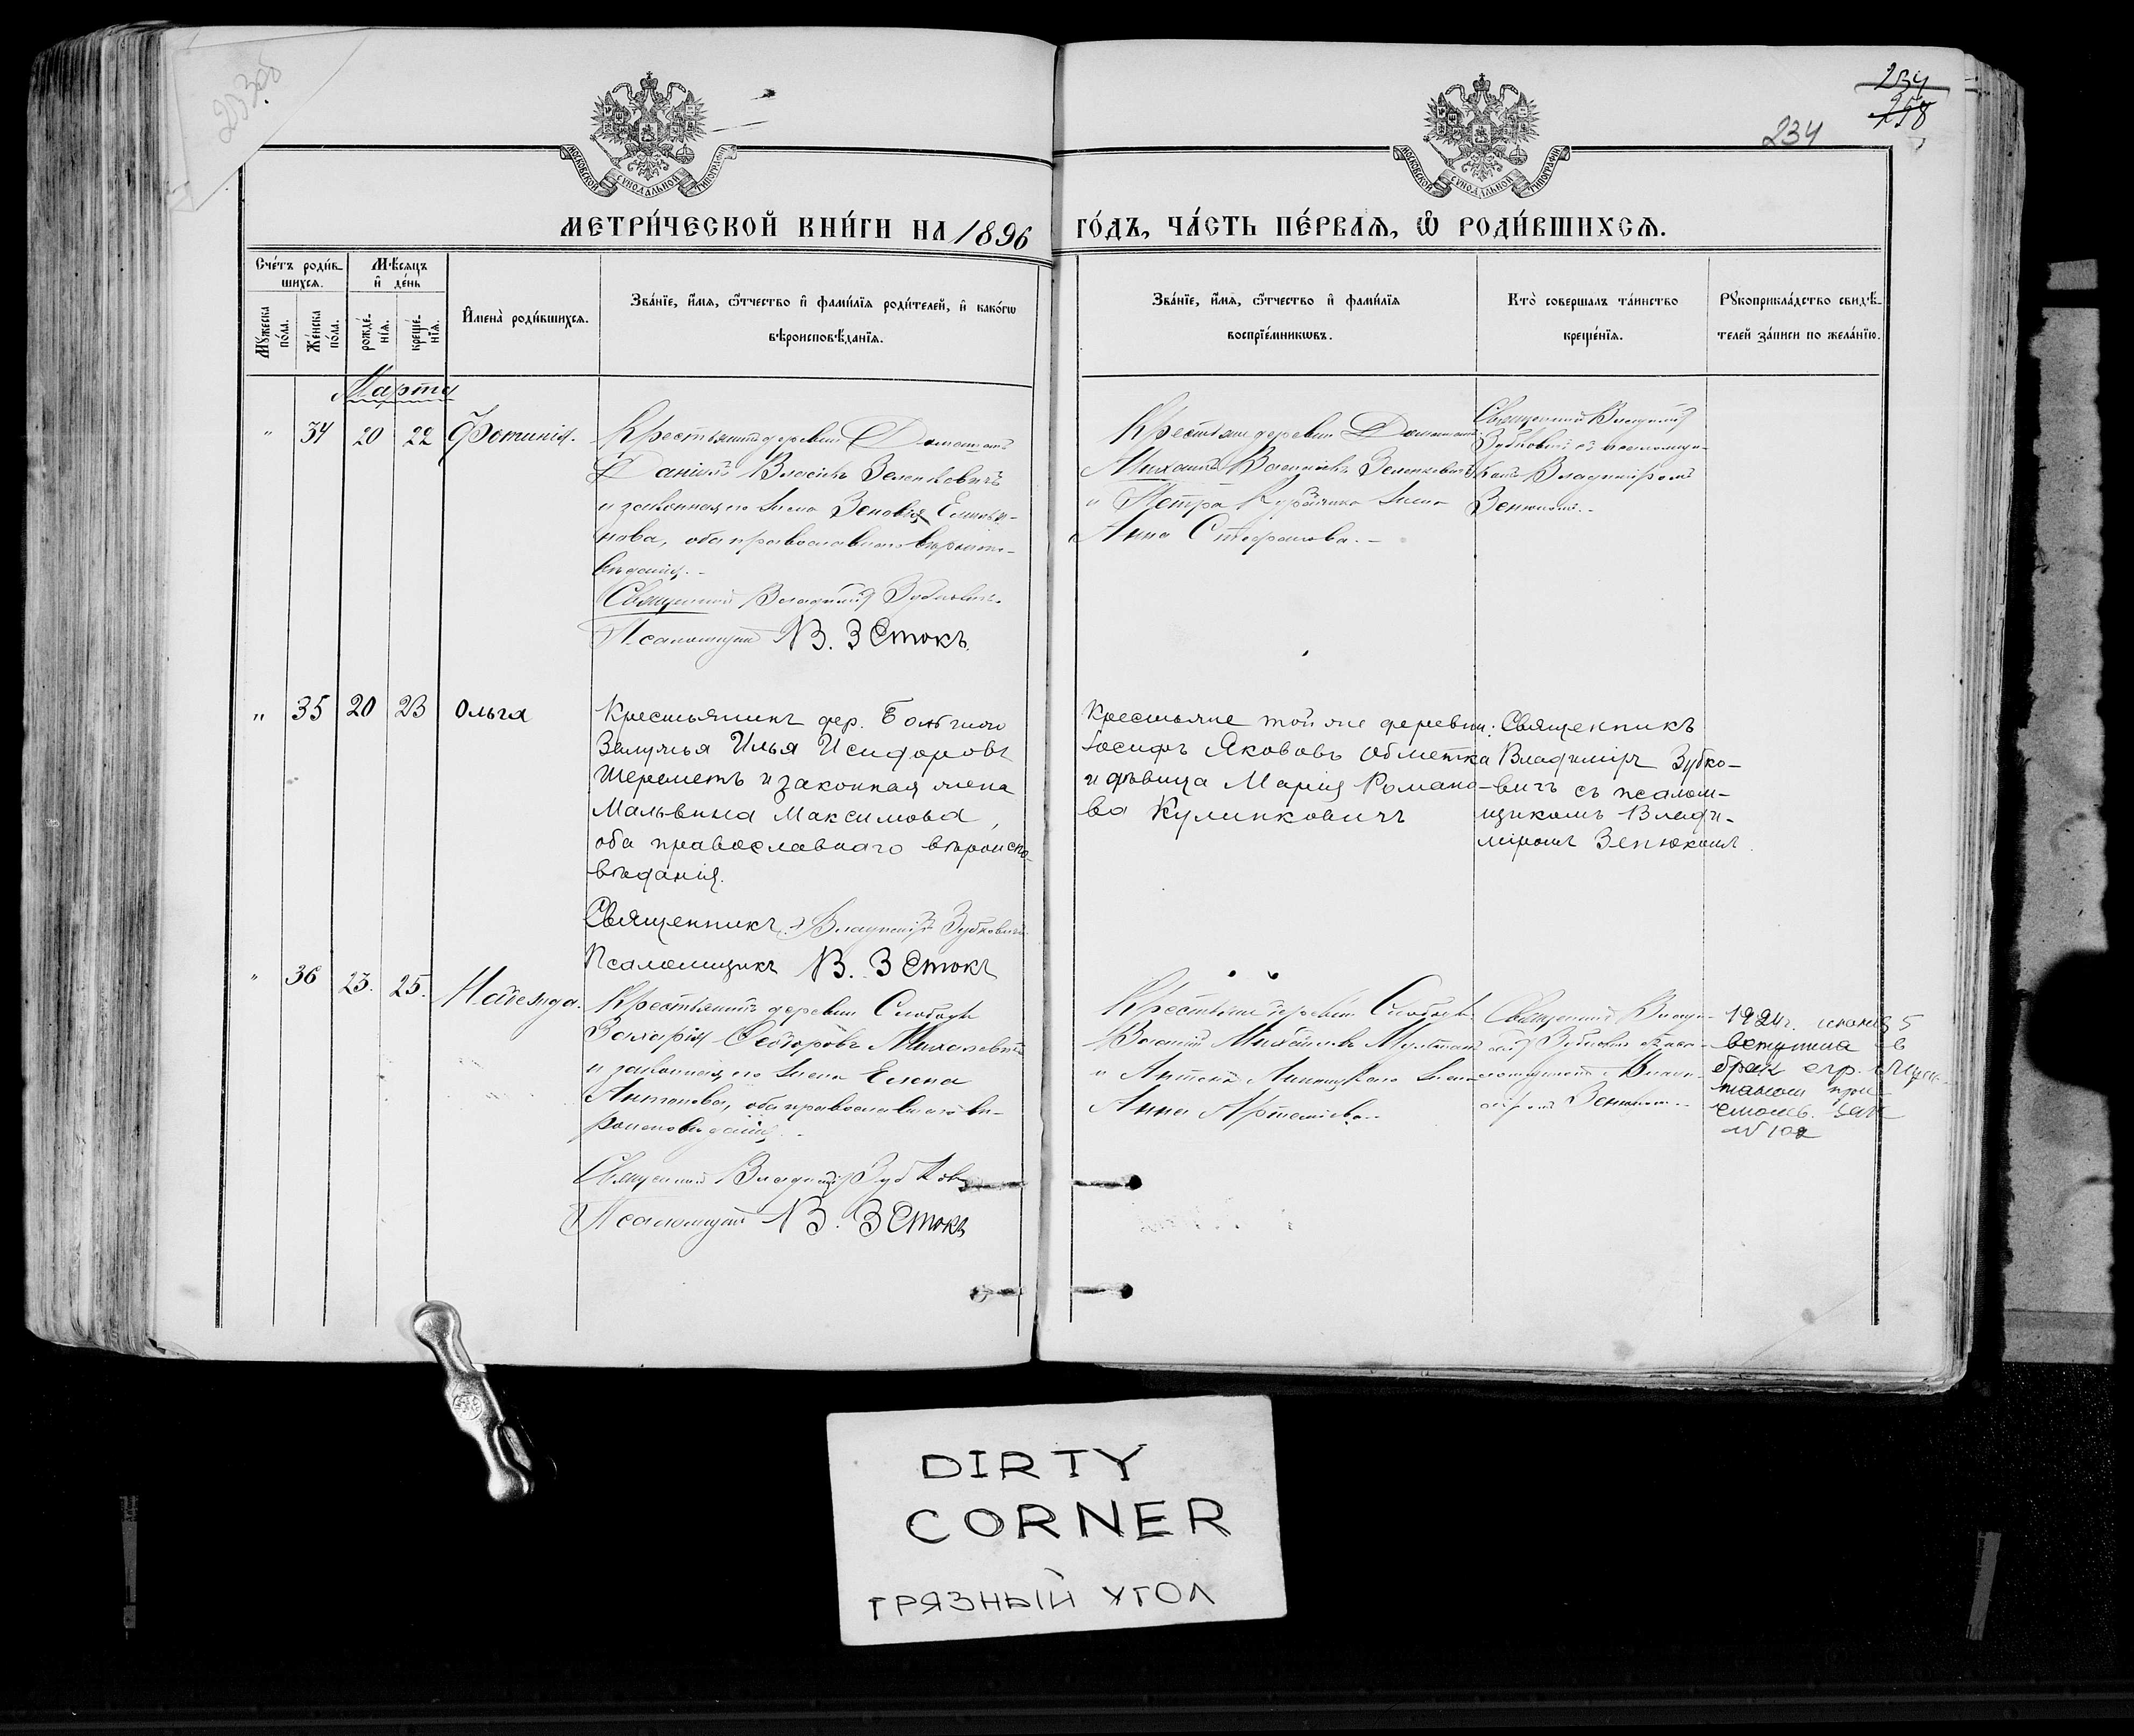 234
258
234
МОСКОВСКОЙ СѴНОДАЛЬНОЙ ТИПОГРАФІИ
МОСКОВСКОЙ СѴНОДАЛЬНОЙ ТИПОГРАФІИ
МЕТРИ́ЧЕСКОЙ КНИ́ГИ НА 1896 ГО́ДЪ, ЧА́СТЬ ПЕ́РВАѦ, Ѡ҆ РОДИ́ВШИХСѦ.
Сче́тъ роди́в-
шихсѧ.
Мꙋ́жеска по́ла.
Же́нска по́ла.
Мѣ́сѧцъ и҆ де́нь
рожде́-
нїѧ.
креще́-
нїѧ.
И҆мена̀ роди́вшихсѧ.
Зва́нїе, и҆́мѧ, ѻ҆́тчество и҆ фами́лїѧ роди́телей, и҆ како́гѡ
вѣроисповѣ́данїѧ.
Зва́нїе, и҆́мѧ, ѻ҆́тчество и҆ фами́лїѧ
воспрїе́мникѡвъ.
Кто̀ совершалъ та́инство
креще́нїѧ.
Рꙋкоприкла́дство свидѣ́-
телей за́писи по жела́нїю.
Марта
" 34 20 22 Фотинія.
Крестьянинъ деревни
Даніилъ Власіевъ Зеленкевичъ
и законная его жена Зеновія
нова, оба православнаго вѣроиспо-
вѣданія.
Священникъ Владиміръ Зубковичъ.
Псаломщикъ В. Зенюкъ.
Крестьяне деревни
Михаилъ Зеленкевичъ
и Петра жена
Анна Стефанова.
Священникъ Владиміръ
Зубковичъ съ псаломщи-
комъ Владиміромъ
Зенюкомъ.
" 35 20 23 Ольга
Крестьянинъ дер. Большого
Залужья Илья Исидоровъ
Шереметъ и законная жена
Мальвина Максимова,
оба православнаго вѣроиспо-
вѣданія.
Священникъ Владиміръ Зубковичъ
Псаломщикъ В. Зенюкъ
Крестьяне той же деревни:
Іосифъ Яковов Обметка
и дѣвица Марія Романо-
ва Кулинковичъ
Священникъ
Владиміръ Зубко-
вичъ съ псалом-
щикомъ Влади-
міромъ Зенюкомъ.
" 36 23. 25. Надежда.
Крестьянинъ деревни Слободы
Захарія Ѳеодоровъ Михалевичъ
и законная его жена Елена
Антонова, оба православнаго вѣ-
роисповѣданія.
Священникъ Владиміръ Зубкович
Псаломщикъ В. Зенюкъ
Крестьяне деревни Слободы
Василій Михайловъ
и Антона жена
Анна Артеміева.
Священникъ Влади-
міръ Зубковичъ съ пса-
ломщикомъ Влади-
міромъ Зенюкомъ.
1924г. 5
вступила в
брак
№ 102
DIRTY
CORNER
ГРЯЗНЫЙ УГОЛ